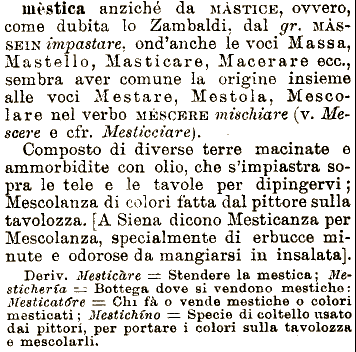 mèstica anziché da MÀSTICE, ovvero,
come dubita lo Zambaldi, dal gr. MÀS-
SEIN impastare, ond'anche le voci Massa,
Mastello, Masticare, Macerare ecc.,
sembra aver comune la origine insieme
alle voci Mestare, Mestola, Mesco-
lare nel verbo MÉSCERE mischiare (v. Me-
scere e cfr. Mesticciare).
Composto di diverse terre macinate e
ammorbidite con olio, che s'impiastra so-
pra le tele e le tavole per dipingervi;
Mescolanza di colori fatta dal pittore sulla
tavolozza. [A Siena dicono Mesticanza per
Mescolanza, specialmente di erbucce mi-
nute e odorose da mangiarsi in insalata].
Deriv. Mesticàre = Stendere la mestica; Me-
sticherìa = Bottega dove si vendono mestiche:
Mesticatóre = Chi fà o vende mestiche o colori
mesticati; Mestichìno = Specie di coltello usato
dai pittori, per portare i colori sulla tavolozza
e mescolarli.